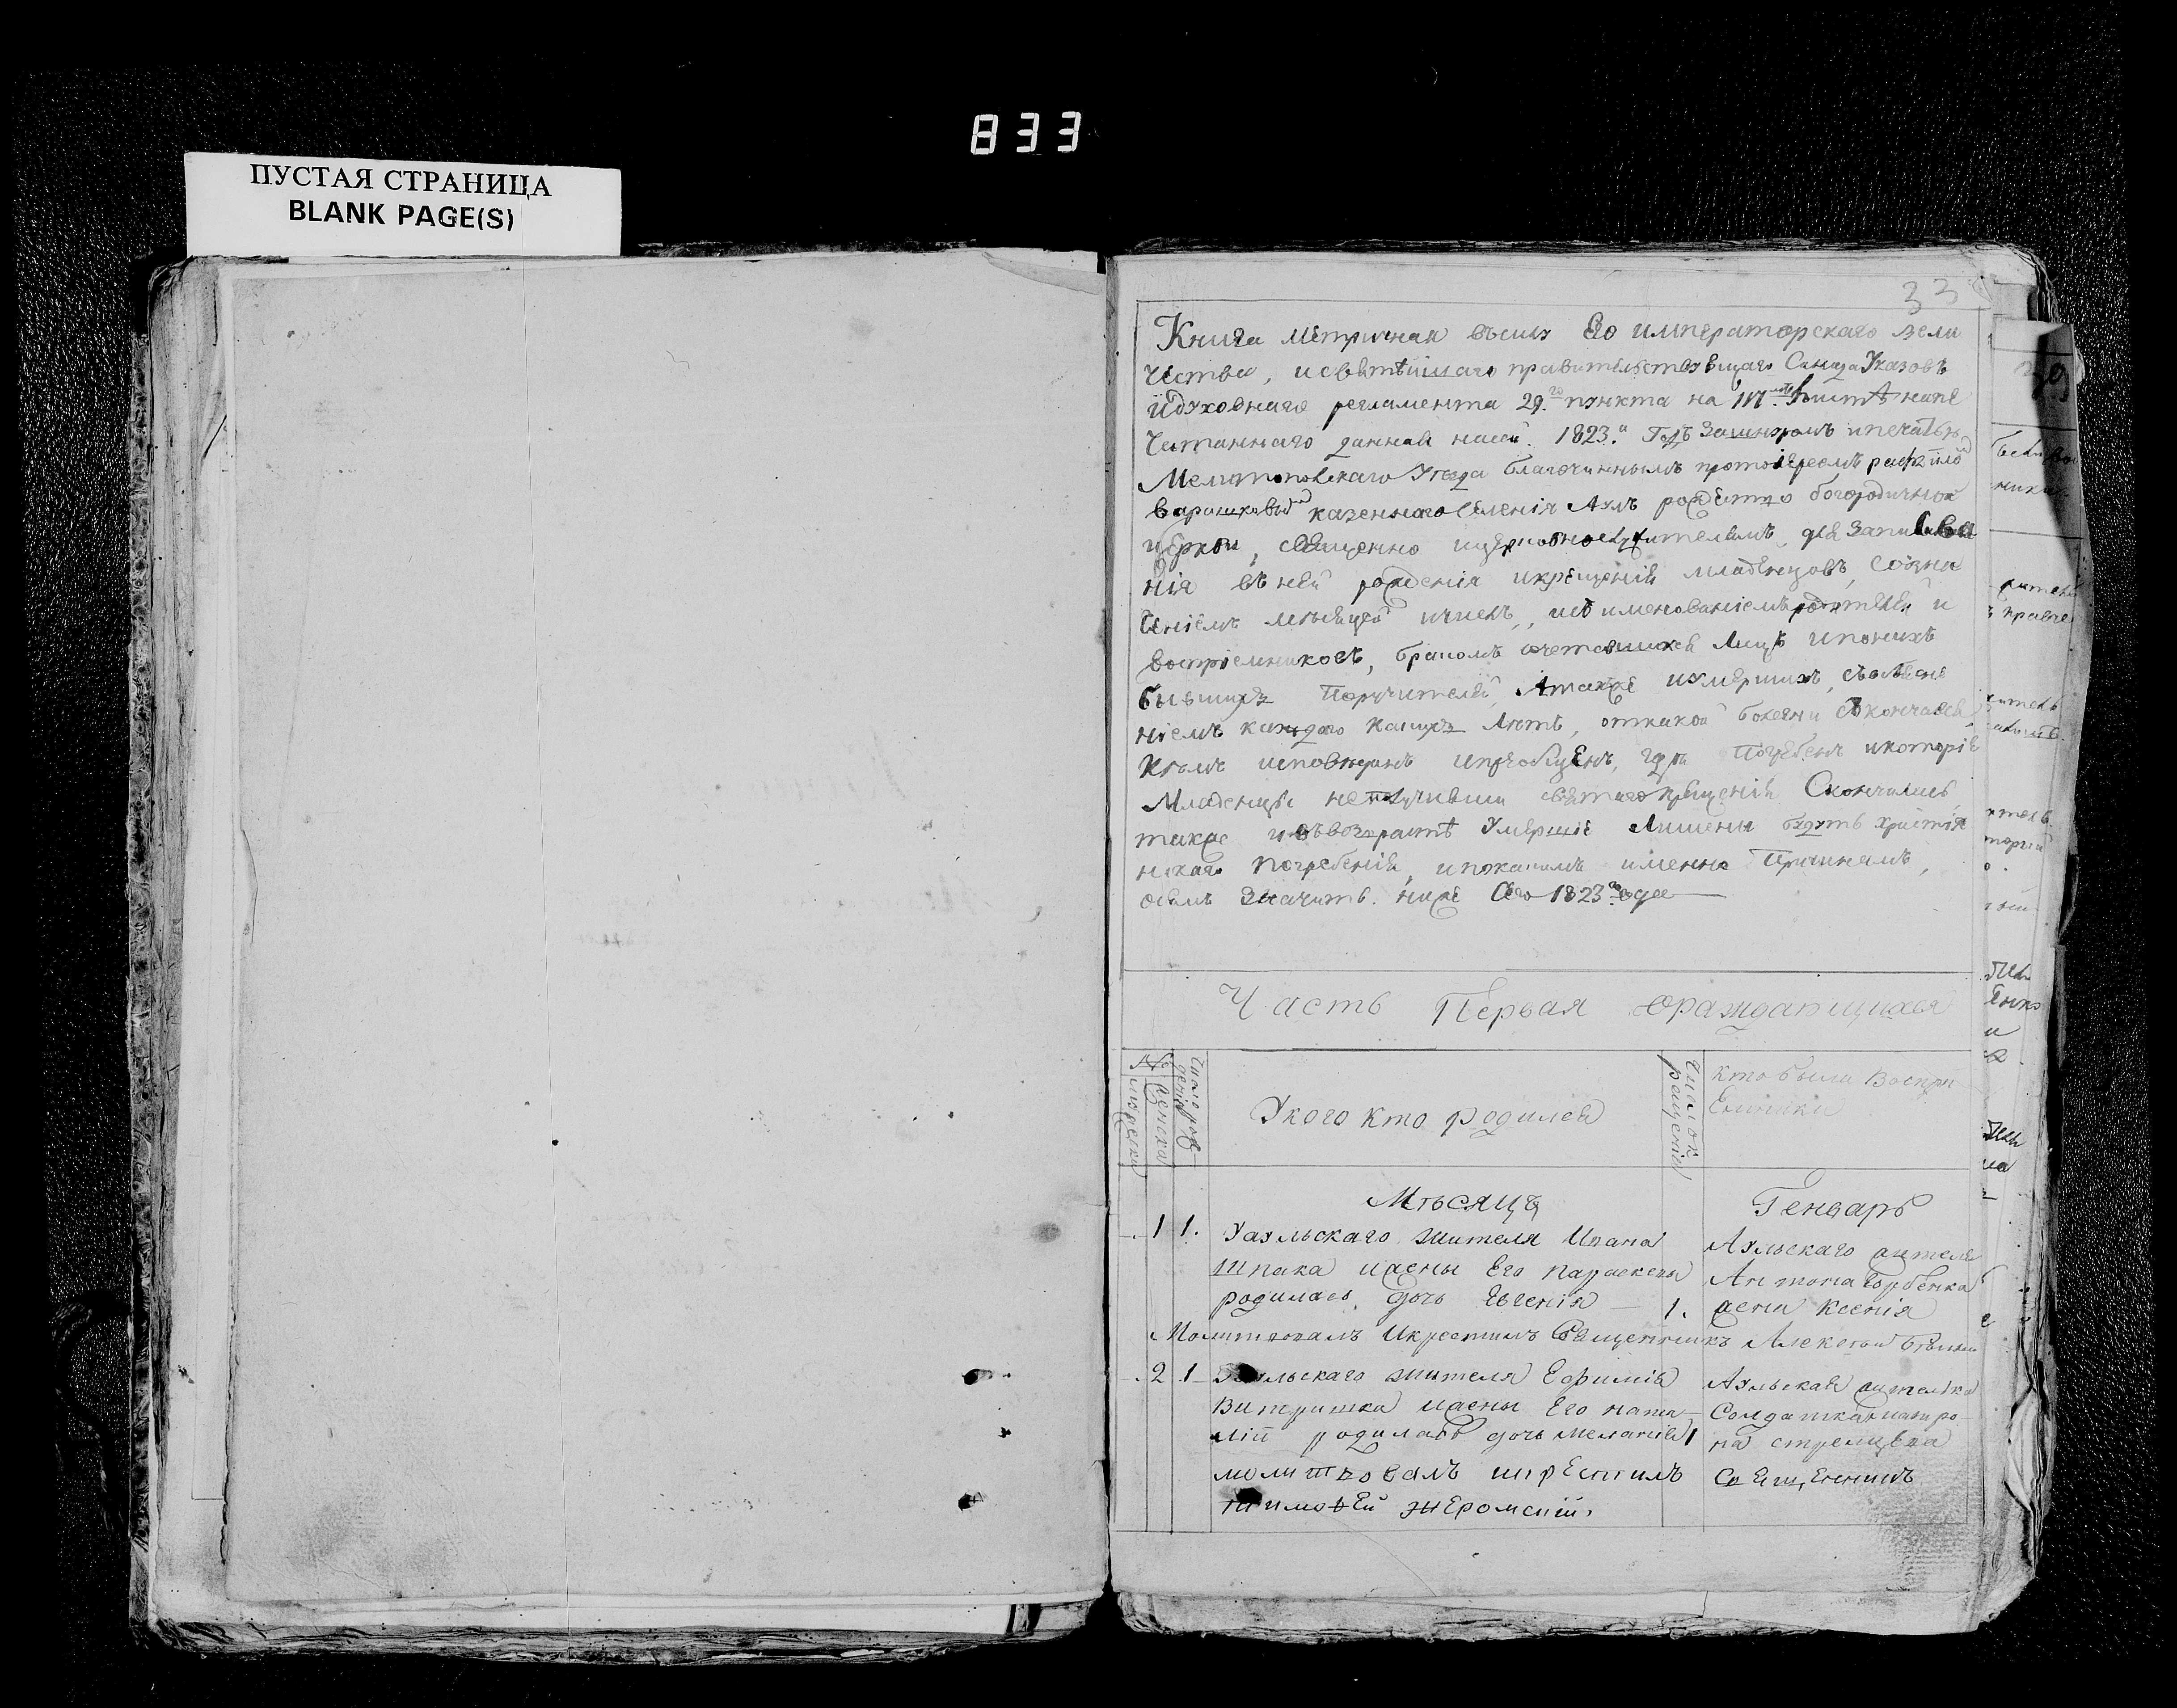 833
ПУСТАЯ СТРАНИЦА
BLANK PAGE(S)
33
Книга Метричная Его императорскаго вели
чества, и святѣйшаго правительствующаго Синода Указовъ
и духовнаго регламента 29.го пункта на листѣ напе
чатаннаго данная 1823.й Годъ За шнуромъ и печатью
Мелитопольскаго Уезда благочиннымъ протоіереемъ
казеннаго Селенія Аулъ рождество богородичной
церкви, священно и церковнослужителемъ, для Записыва
нія въ ней рожденія и крещенія младенцовъ, Съозна
ченіемъ месяцей и чиселъ, и съ именованіемъ родителей и
воспріемниковъ, бракомъ сочетавшихся Лицъ и по нихъ
бывшихъ Поручителей, А также умершихъ, съ
ніемъ каждаго Лѣтъ, от какой болезни Скончался,
Кѣмъ исповѣданъ и пріобщенъ, гдѣ Погребенъ и которіе
Младенцы не получивши святаго крещенія Скончались,
также и въ возрастѣ Умершіе Лишены будутъ христія
нскаго Погребенія, и по какимъ имянно Причинамъ,
осемъ Значитъ ниже Сего 1823.го года
Часть Первая ораждающихся
№ мужеска
женска
Число рож
денія
Укого кто родился
Число к
рещенія
кто были Воспрі
Емники
Мѣсяцъ Генварь
1 1. Уаульскаго жителя Ивана
Шпака ижены Его параскевы
родилась дочь Евгенія 1.
Аульскаго жителя
Антона Горбенка
жена Ксенія
Молитвовалъ Икрестилъ Священникъ Алексей
2 1 Уаульскаго жителя Ефимія
ижены Его ната
ліи родилась дочь Меланія 1
Аульская жителька
Солдатка матро
на стрелцева
молитвовалъ икрЕстилъ СвЕщЕнникъ
тимоѳЕй жЕромскій.